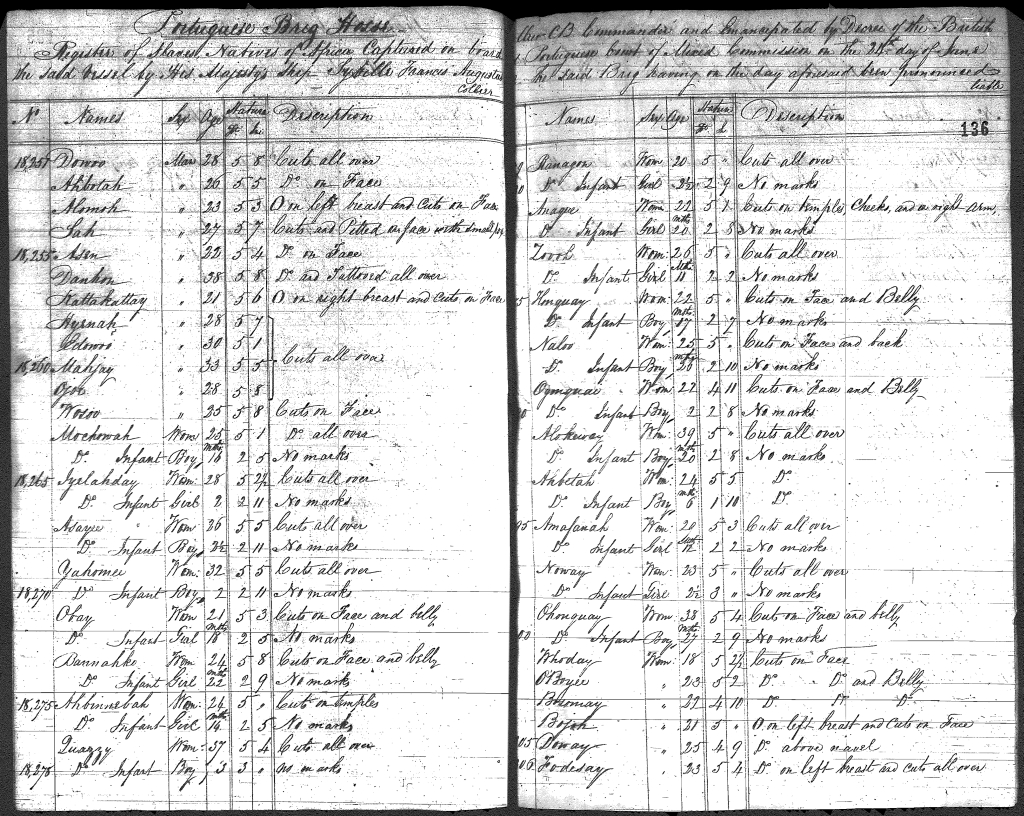 Portuguese Brig Hosse
Register of Slaves Natives of Africa Captured on board
the said Vessel by His Majesty's Ship Sybille Francis Augustus
Collier
No Names Sex Age Stature Description
ft. In.
18,251 Dowoo Man 28 5 8 Cuts all over
Ahbotah " 26 5 5 Do on Face
Alomoh " 23 5 3 O on left breast and Cuts on Face
Jah " 27 5 7 Cuts and Pitted on face with small pox
18,255 Asen " 22 5 4 Do on Face
Dankon " 38 5 8 Do and Tattooed all over
Kattakattay " 21 5 6 O on right breast and cuts on Face
Hyrnah " 28 5 7
Edowoo " 30 5 1
Cuts all over
18,260 Mahjay " 33 5 5
Ojoe " 28 5 8
Wosoo " 25 5 8 Cuts on Face
Mochowah Wom: 25 5 1 Do all over
Do Infant Boy mths 16 2 5 No marks
18,265 Iyelahday Wom: 28 5 2½ Cuts all over
Do Infant Girl 2 2 11 No marks
Asayee Wom 26 5 5 Cuts all over
Do Infant Boy 2½ 2 11 No marks
Yahomee Wom: 32 5 5 Cuts all over
18,270 Do Infant Boy 2 2 11 No marks
Obay Wom 21 5 3 Cuts on Face and belly
Do Infant Girl mths 18 2 5 No marks
Bannahke Wom 24 5 8 Cuts on Face and belly
Do Infant Girl mths 22 2 9 No marks
18,275 Ahbinnebah Wom: 24 5 " Cuts on temples
Do Infant Girl mths 14 2 5 No marks
Quazzy Wom: 37 5 4 Cuts all over
18,278 Do Infant Boy 3 3 " no marks
CB Commander and Emancipated by Decree of the British
& Portuguese Court of Mixed Commission on the day of June
the said Brig having on the day aforesaid been pronounced
liable
Names Sex Age Stature Description
ft. In.
136
Ranagon Wom: 20 5 " Cuts all over
Do Infant Girl 2½ 2 9 No marks
Anague Wom 22 5 1 Cuts on temples, Cheeks, and on right arm,
Do Infant Girl mths 20 2 8 No marks
Zovoh Wom: 26 5 " Cuts all over
Do Infant Girl Mths 11 2 2 No marks
Honguay Wom: 22 5 " Cuts on Face and Belly
Do Infant Boy mths 17 2 7 No marks
Naloo Wom: 25 5 " Cuts on Face and back
Do Infant Boy mths 26 2 10 No marks
Ogmquai Wom 22 4 11 Cuts on Face and Belly
Do Infant Boy 2 2 8 No marks
Alokeway Wom: 39 5 " Cuts all over
Do Infant Boy mths 20 2 8 No marks
Ahbetah Wom 24 5 5 Do
Do Infant Boy mths 6 1 10 Do
95 Amafanah Wom: 20 5 3 Cuts all over
Do Infant Girl mths 12 2 2 No marks
Noway Wom: 23 5 " Cuts all over
Do Infant Girl 2½ 3 " No marks
Ohonguay Wom: 38 5 4 Cuts on Face and belly
Do Infant Boy mths 27 2 9 No marks
Whoday Wom: 18 5 2½ Cuts on Face
OBoyee " 23 5 2 Do " Do and Belly
Bosomay " 22 4 10 Do Do Do
Bojoh " 21 5 " O on left breast and Cuts on Face
05 Doway " 25 4 9 Do above navel
06 Fodesay " 23 5 4 Do on left breast and cuts all over